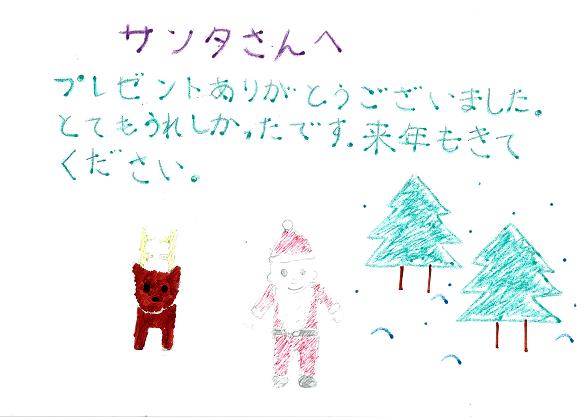 サンタさんへ
プレゼントありがとうございました。
とてもうれしかったです。来年もきて
ください。